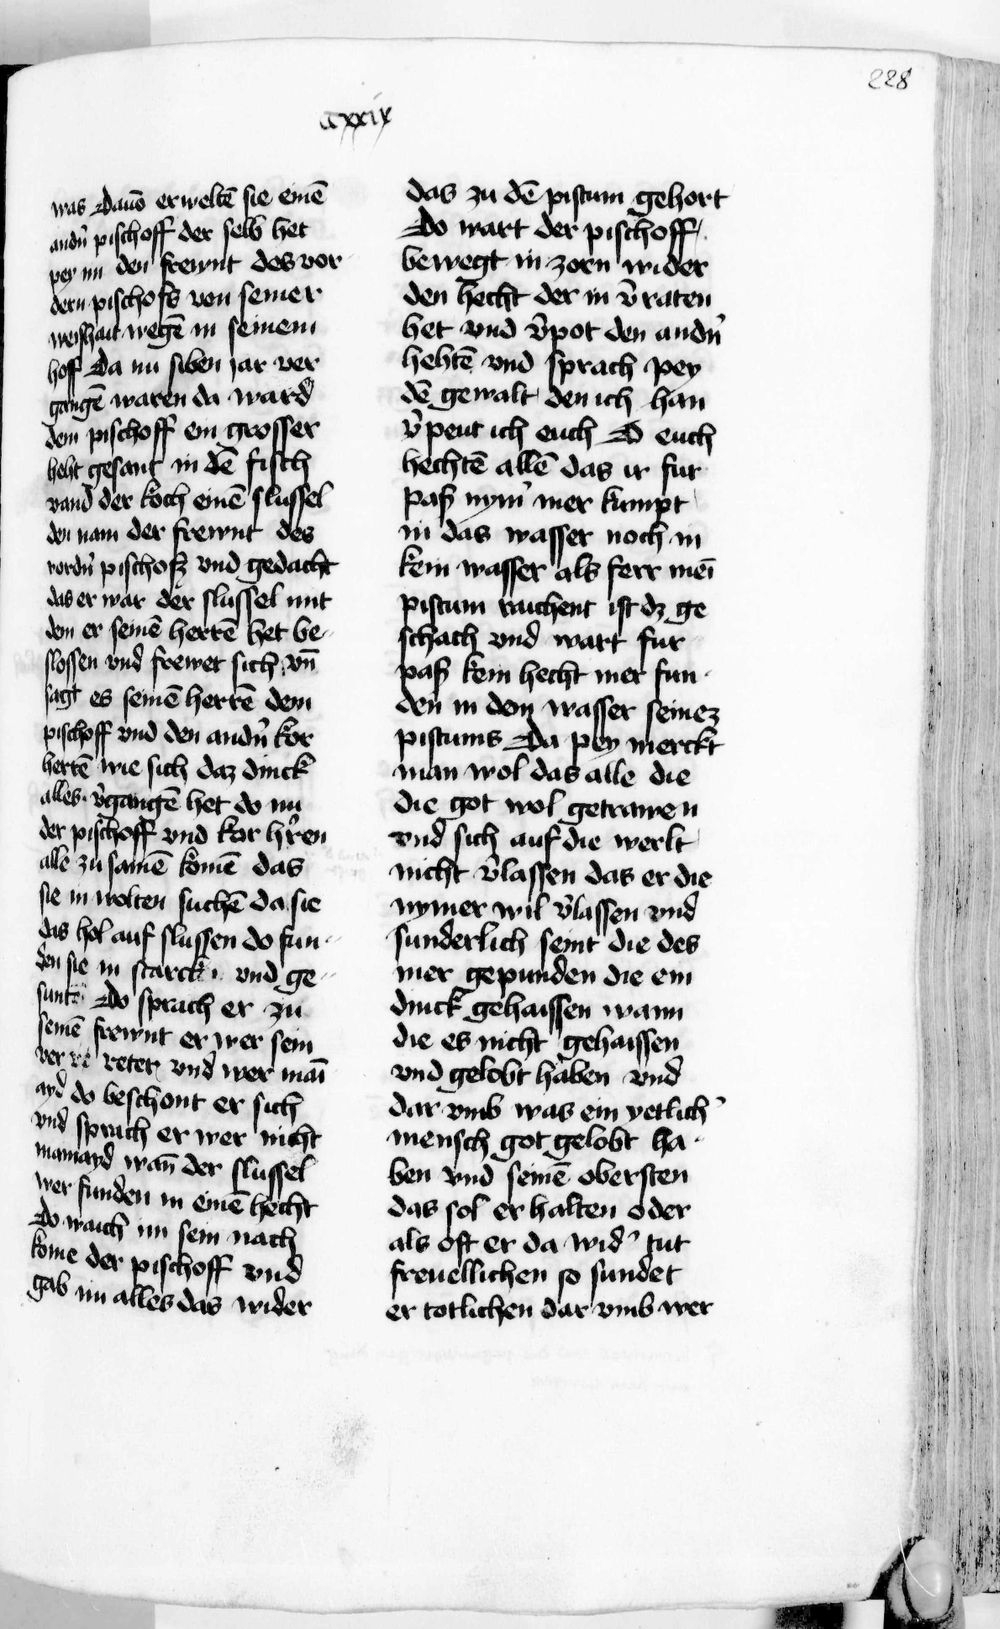 228
cxxix
was Dauō erweltē sie einē
andn̄ pischoff der selb het
pey im den frewnt des vor
dern pischofs von seiner
weishait wegē in seinem
hoff Da nu siben jar ver
gangē waren da ward
dem pischoff ein grosser
heht gesant in dē fisch
vand der koch einē slussel
den nam der frewnt des
vordn̄ pischofz vnd gedacht
das er war der slussel mit
dem er seinē herrē het be-
slossen vnd frewet sich vn̄
sagt es seinē herrē dem
pischoff vnd den andn̄ kor
herrē wie sich daz dinck
alles v̄gangē het do nu
der pischoff vnd kor hr̄en
allē zu samē komē das
sie in wolten suchē da sie
das hol auf slussen do fun-
den sie in starck vnd ge-
sunt Do sprach er zu
seinē frewnt er wer sein
ver reter vnd wer main
ayd do beschont er sich
vnd sprach er wer nicht
mainayd wan̄ der slussel
wer funden in einē hecht
Do waich im sein nach
kome der pischoff vnd
gab im alles das wider
das zu dē pistum gehort
Do wart der pischoff
bewegt in zorn wider
den hecht der in v̄raten
het vnd v̄pot den andn̄
hehtē vnd sprach pey
dē gewalt den ich han
v̄peut ich euch D euch
hechtē allē das ir fur
pas nym̄ mer kumpt
in das wasser noch in
kein wasser als ferr mei
pistum raichent ist dz ge
schach vnd wart fur
pas kein hecht mer fun-
den in dem wasser seinez
pistums Da pey merckt
man wol das alle die
die got wol getrawen
vnd sich auf die werlt
nicht v̄lassen das er die
nymer wil v̄lassen vnd
sunderlich seint die des
mer gepunden die ein
dinck gehaissen wann
die es nicht gehaissen
vnd gelobt haben vnd
dar vmb was ein yetlich̄
mensch got gelobt ha-
ben vnd seinē obersten
das sol er halten oder
als oft er da wid̄ tut
freuellichen so sundet
er totlichen dar vmb wer